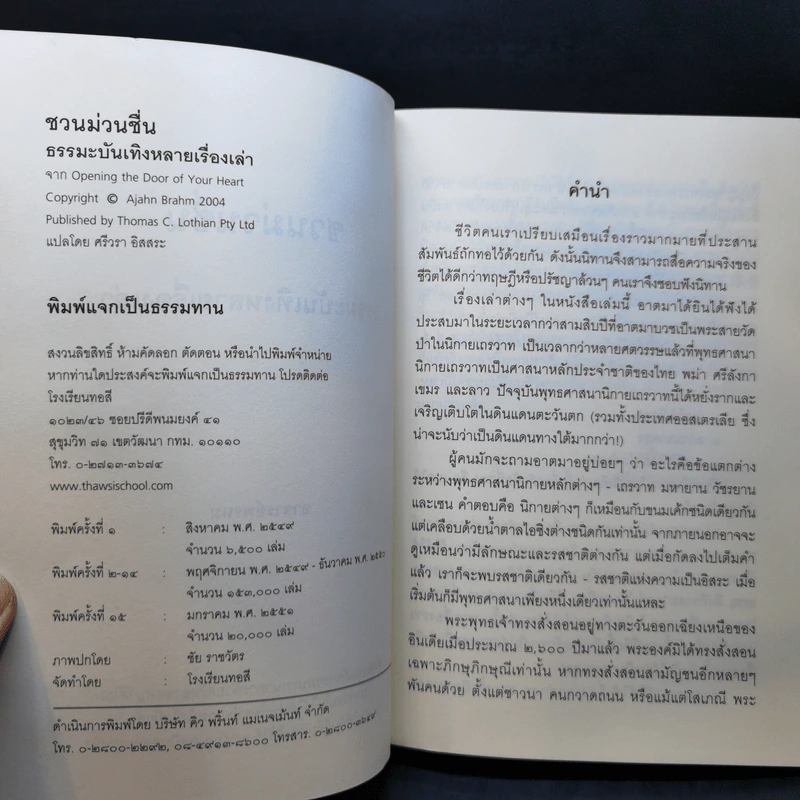 ชวนม่วนชื่น
ธรรมะบันเทิงหลายเรื่องเล่า
จาก Opening the Door of Your Heart
Copyright © Ajahn Brahm 2004
Published by Thomas C. Lothian Pty Ltd
แปลโดย ศรีวรา อิสสระ
พิมพ์แจกเป็นธรรมทาน
สงวนลิขสิทธิ์ ห้ามคัดลอก ตัดตอน หรือนำไปพิมพ์จำหน่าย
หากท่านใดประสงค์จะพิมพ์แจกเป็นธรรมทาน โปรดติดต่อ
โรงเรียนทอสี
๑๐๒๓/๔๖ ซอยปรีดีพนมยงค์ ๔๑
สุขุมวิท ๗๑ เขตวัฒนา กทม. ๑๐๑๑๐
โทร. ๐-๒๗๑๓-๓๖๗๔
www.thawsischool.com
พิมพ์ครั้งที่ ๑ : สิงหาคม พ.ศ. ๒๕๔๙
จำนวน ๖,๕๐๐ เล่ม
พิมพ์ครั้งที่ ๒-๑๔ : พฤศจิกายน พ.ศ. ๒๕๔๙ - ธันวาคม พ.ศ. ๒๕๕๐
จำนวน ๑๕๓,๐๐๐ เล่ม
พิมพ์ครั้งที่ ๑๕ : มกราคม พ.ศ. ๒๕๕๑
จำนวน ๒๐,๐๐๐ เล่ม
ภาพปกโดย : ชัย ราชวัตร
จัดทำโดย : โรงเรียนทอสี
ดำเนินการพิมพ์โดย บริษัท คิว พริ้นท์ แมเนจเม้นท์ จำกัด
โทร. ๐-๒๘๐๐-๒๒๙๒, ๐๘-๔๙๑๓-๘๖๐๐ โทรสาร. ๐-๒๘๐๐-๓๖๔๙
คำนำ
ชีวิตคนเราเปรียบเสมือนเรื่องราวมากมายที่ประสาน
สัมพันธ์ถักทอไว้ด้วยกัน ดังนั้นนิทานจึงสามารถสื่อความจริงของ
ชีวิตได้ดีกว่าทฤษฎีหรือปรัชญาล้วนๆ คนเราจึงชอบฟังนิทาน
เรื่องเล่าต่างๆ ในหนังสือเล่มนี้ อาตมาได้ยินได้ฟังได้
ประสบมาในระยะเวลากว่าสามสิบปีที่อาตมาบวชเป็นพระสายวัด
ป่าในนิกายเถรวาท เป็นเวลากว่าหลายศตวรรษแล้วที่พุทธศาสนา
นิกายเถรวาทเป็นศาสนาหลักประจำชาติของไทย พม่า ศรีลังกา
เขมร และลาว ปัจจุบันพุทธศาสนานิกายเถรวาทนี้ได้หยั่งรากและ
เจริญเติบโตในดินแดนตะวันตก (รวมทั้งประเทศออสเตรเลีย ซึ่ง
น่าจะนับว่าเป็นดินแดนทางใต้มากกว่า!)
ผู้คนมักจะถามอาตมาอยู่บ่อยๆ ว่า อะไรคือข้อแตกต่าง
ระหว่างพุทธศาสนานิกายหลักต่างๆ - เถรวาท มหายาน วัชรยาน
และเซน คำตอบคือ นิกายต่างๆ ก็เหมือนกับขนมเค้กชนิดเดียวกัน
แต่เคลือบด้วยน้ำตาลไอซิ่งต่างชนิดกันเท่านั้น จากภายนอกอาจจะ
ดูเหมือนว่ามีลักษณะและรสชาติต่างกัน แต่เมื่อกัดลงไปเต็มคำ
แล้ว เราก็จะพบรสชาติเดียวกัน - รสชาติแห่งความเป็นอิสระ เมื่อ
เริ่มต้นก็มีพุทธศาสนาเพียงหนึ่งเดียวเท่านั้นแหละ
พระพุทธเจ้าทรงสั่งสอนอยู่ทางตะวันออกเฉียงเหนือของ
อินเดียเมื่อประมาณ ๒,๖๐๐ ปีมาแล้ว พระองค์มิได้ทรงสั่งสอน
เฉพาะภิกษุภิกษุณีเท่านั้น หากทรงสั่งสอนสามัญชนอีกหลายๆ
พันคนด้วย ตั้งแต่ชาวนา คนกวาดถนน หรือแม้แต่โสเภณี พระ